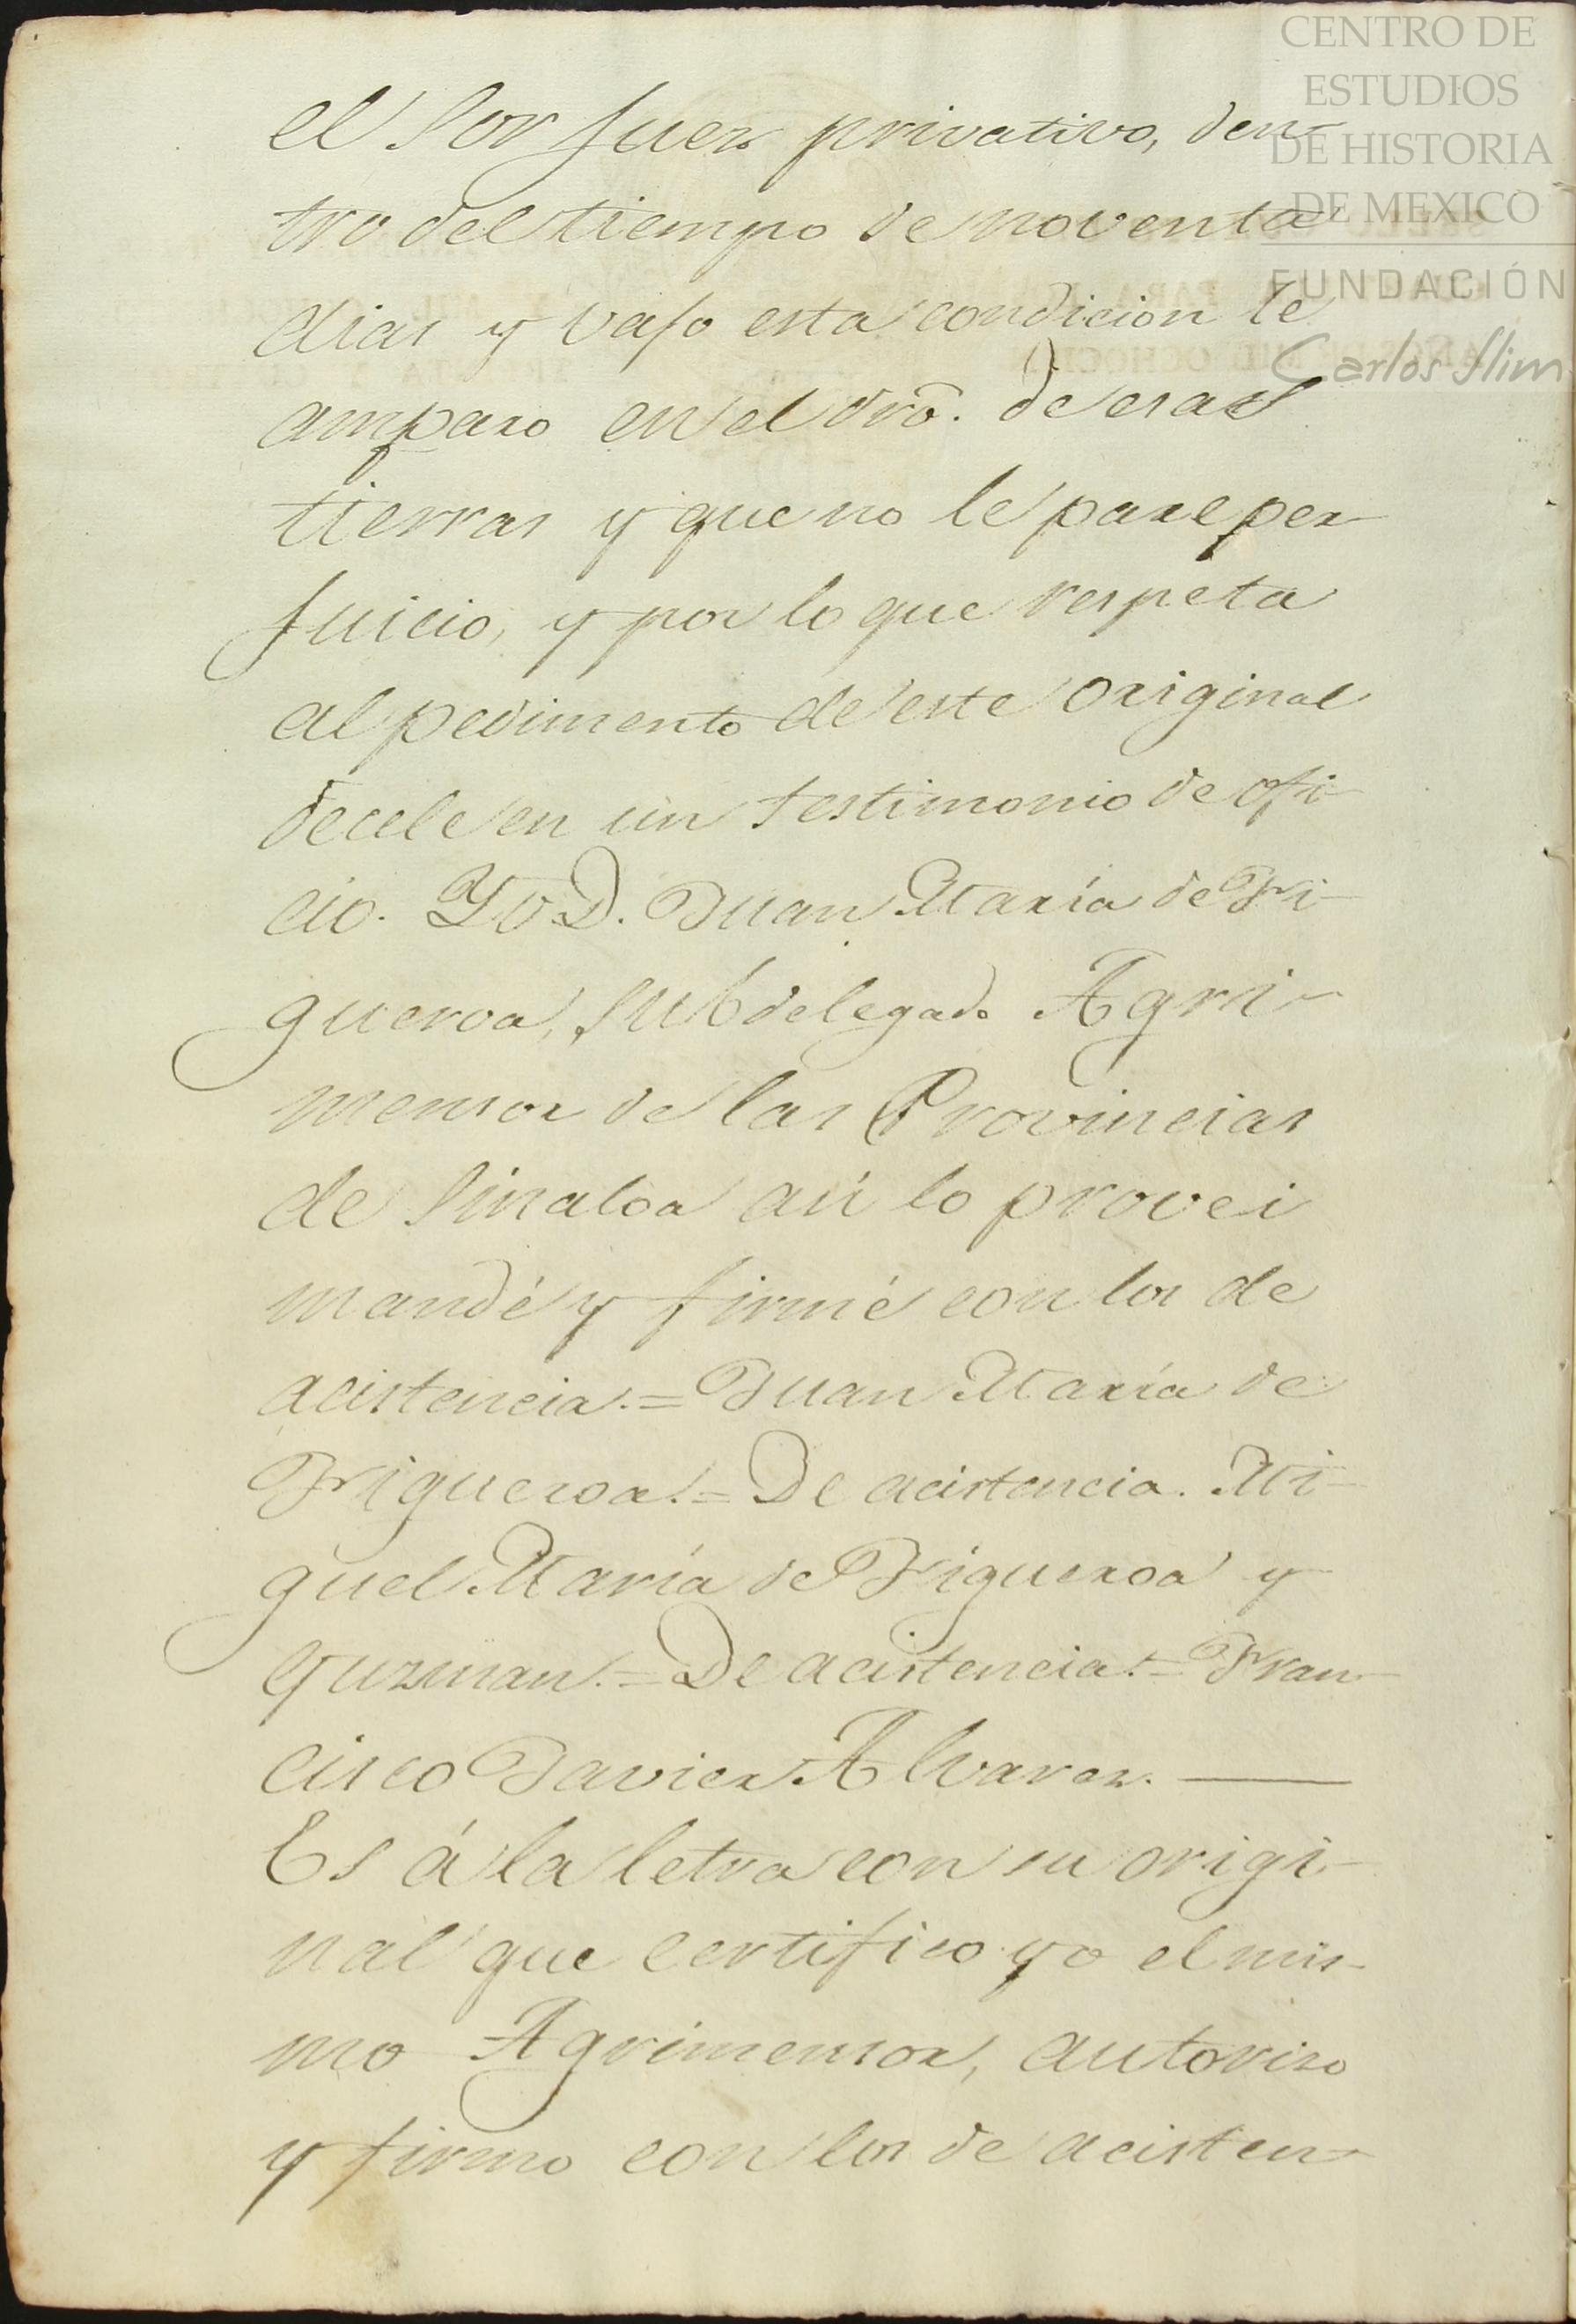 CENTRO DE
ESTUDIOS
DE HISTORIA
DE MEXICO
FUNDACIÓN
Carlos Slim
el Sor Juez privativo, den-
tro del tiempo de noventa
dias y vajo esta condicion le
amparo en el dro. de esas
tierras y que no le pare per-
juicio, y por lo que respeta
al pedimento de este original
decele en un testimonio de ofi-
cio. Yo D. Juan María de Fi-
gueroa, subdelegado Agri-
mensor de las Provincias
de Sinaloa así lo provei
mandé y firmé con los de
acistencia.=Juan María de
Figueroa.=De acistencia. Mi-
guel María de Figueroa y
Guzman.=De acistencia.=Fran-
cisco Javier Alvarez.
Es á la letra con su origi-
nal que certifico yo el mis-
mo Agrimensor, autoriso
y firmo con los de acisten-